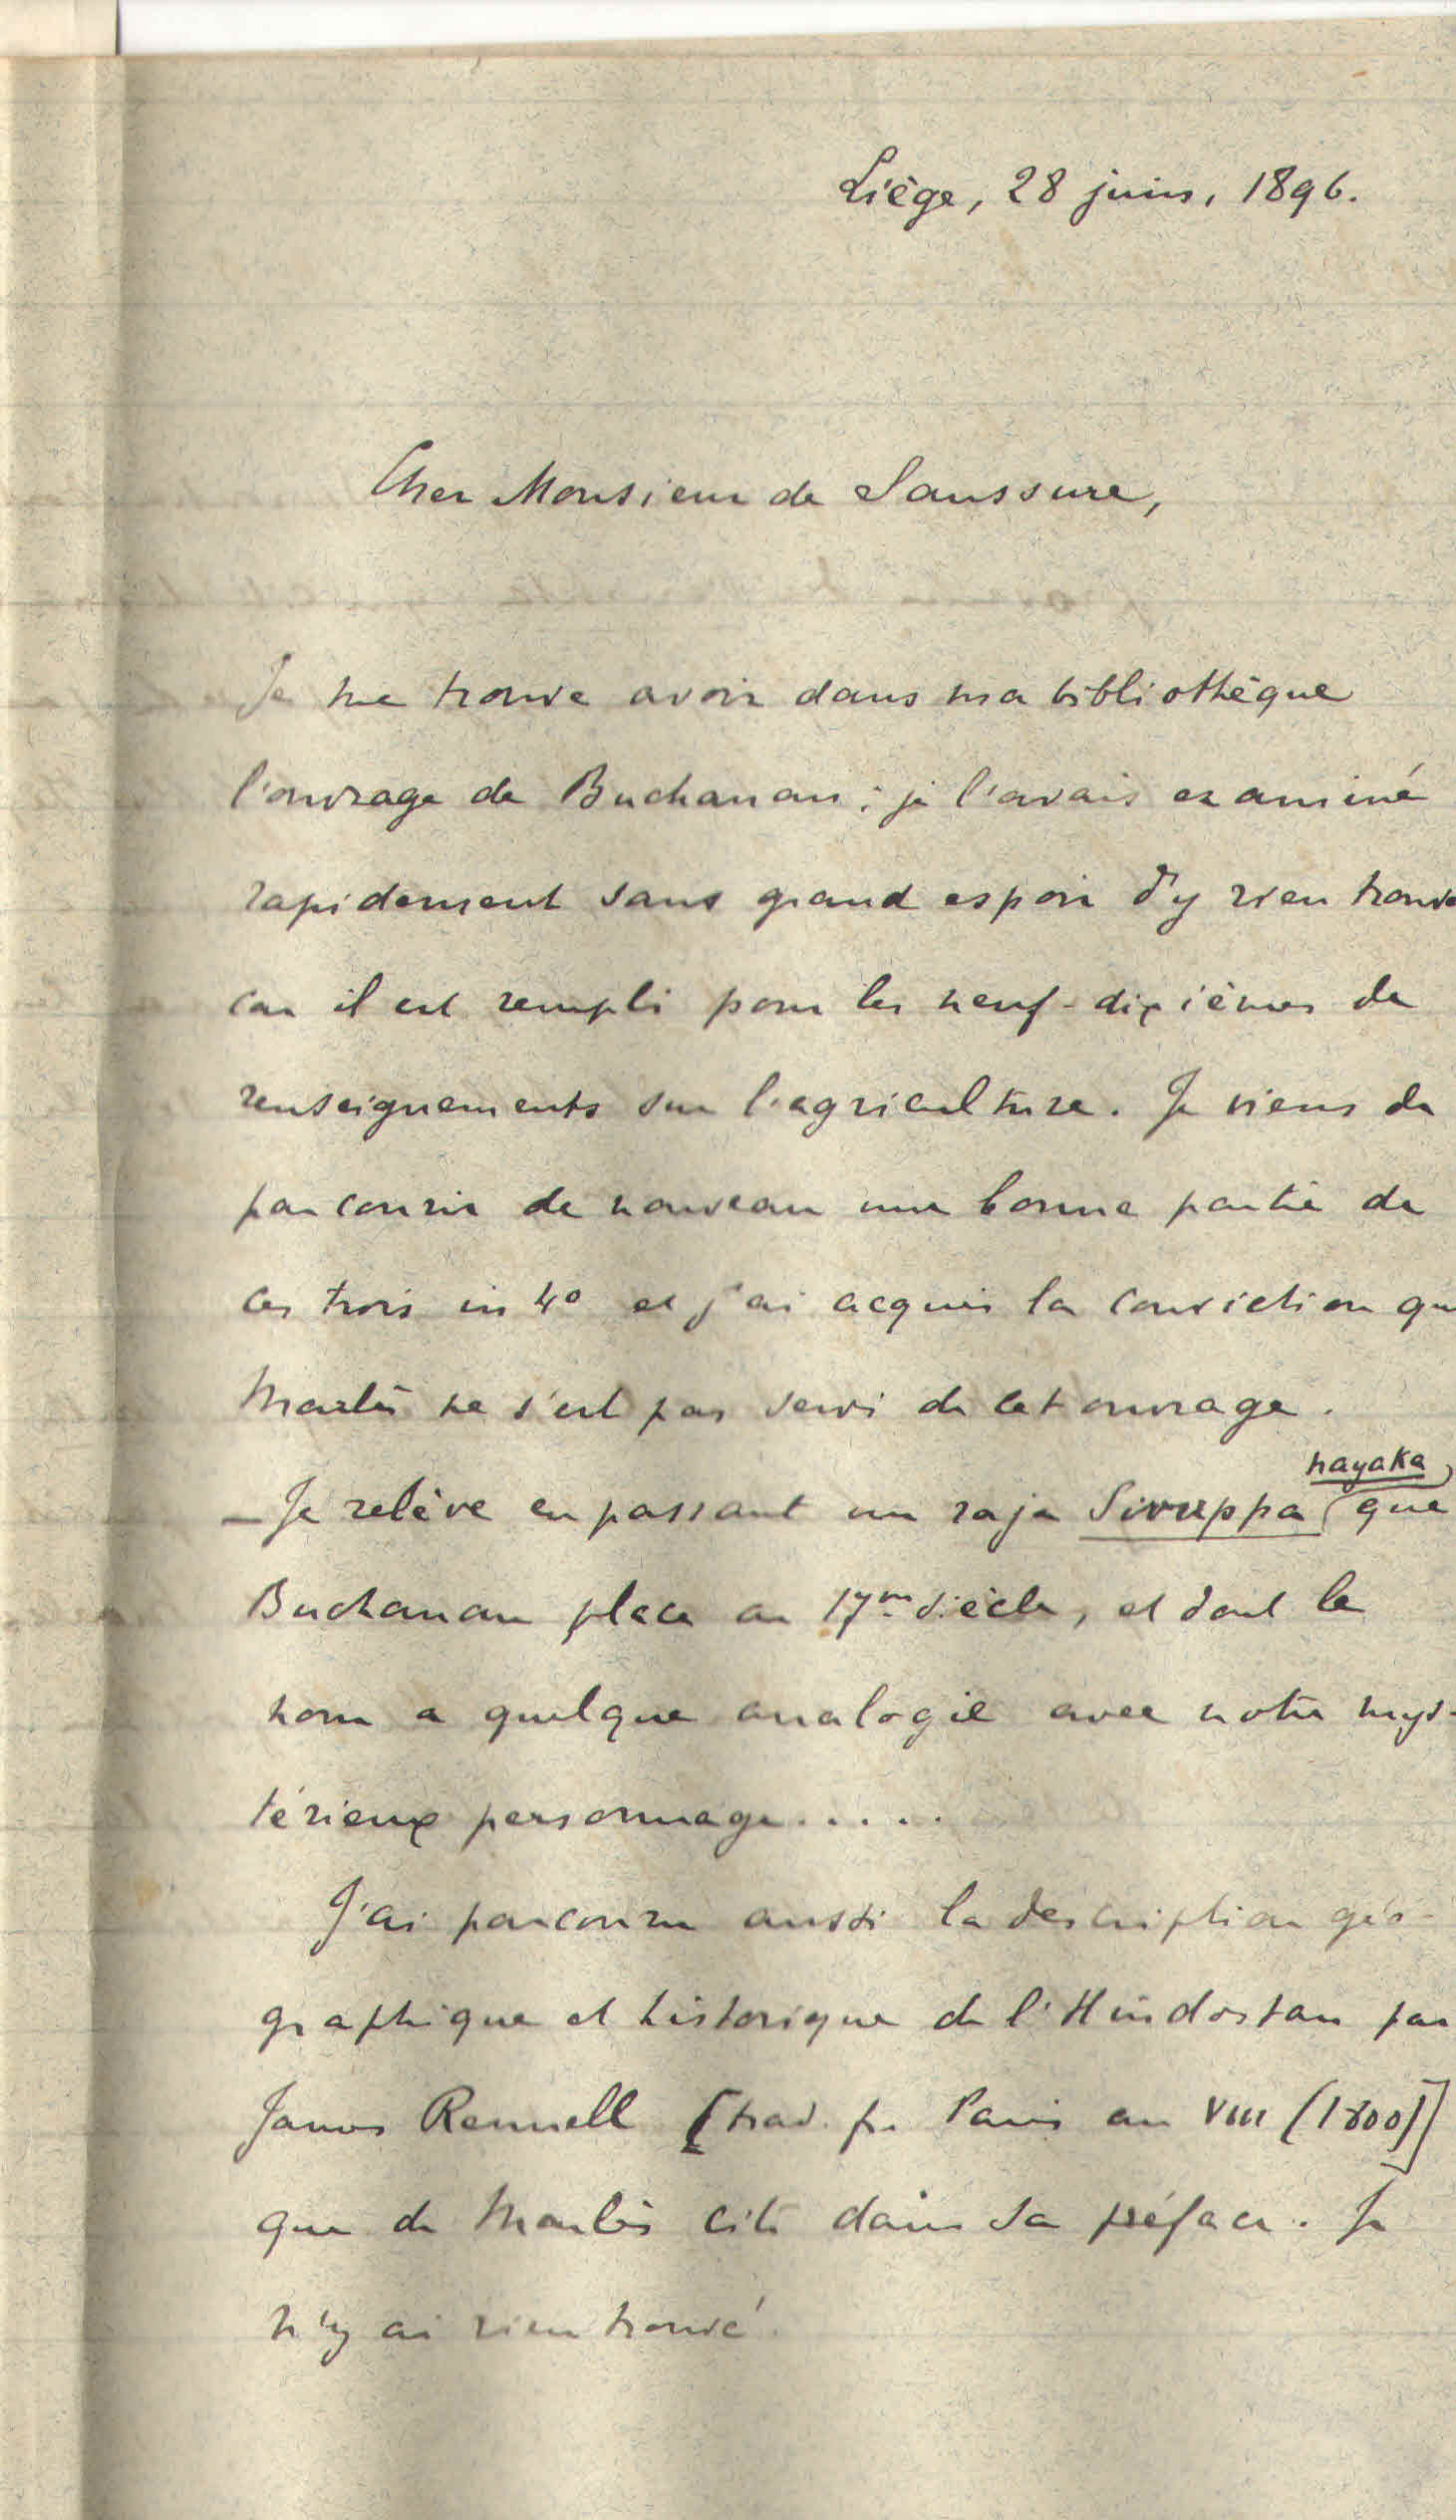 Liège, 28 juin, 1896.
Cher Monsieur de Saussure,
Je me trouve avoir dans ma bibliothèque
l'ouvrage de Buchanan ; je l'avais examiné
rapidement sans grand espoir d'y rien trouve
car il est rempli pour les neuf-dixièmes de
renseignements sur l'agriculture. Je viens de
parcourir de nouveau une bonne partie de
ces trois in 4° et j'ai acquis la conviction que
Marlès ne s'est pas servi de cet ouvrage.
nayaka
– Je relève en passant un raja Sivuppa que
Buchanan place au 17me siècle, et dont le
nom a quelque analogie avec notre mys-
térieux personnage.....
J'ai parcouru aussi la description géo-
graphique et historique de l'Hindostan par
James Rennell [trad. fr. Paris an VIII (1800)]
que de Marlès cite dans sa préface. Je
n'y ai rien trouvé.